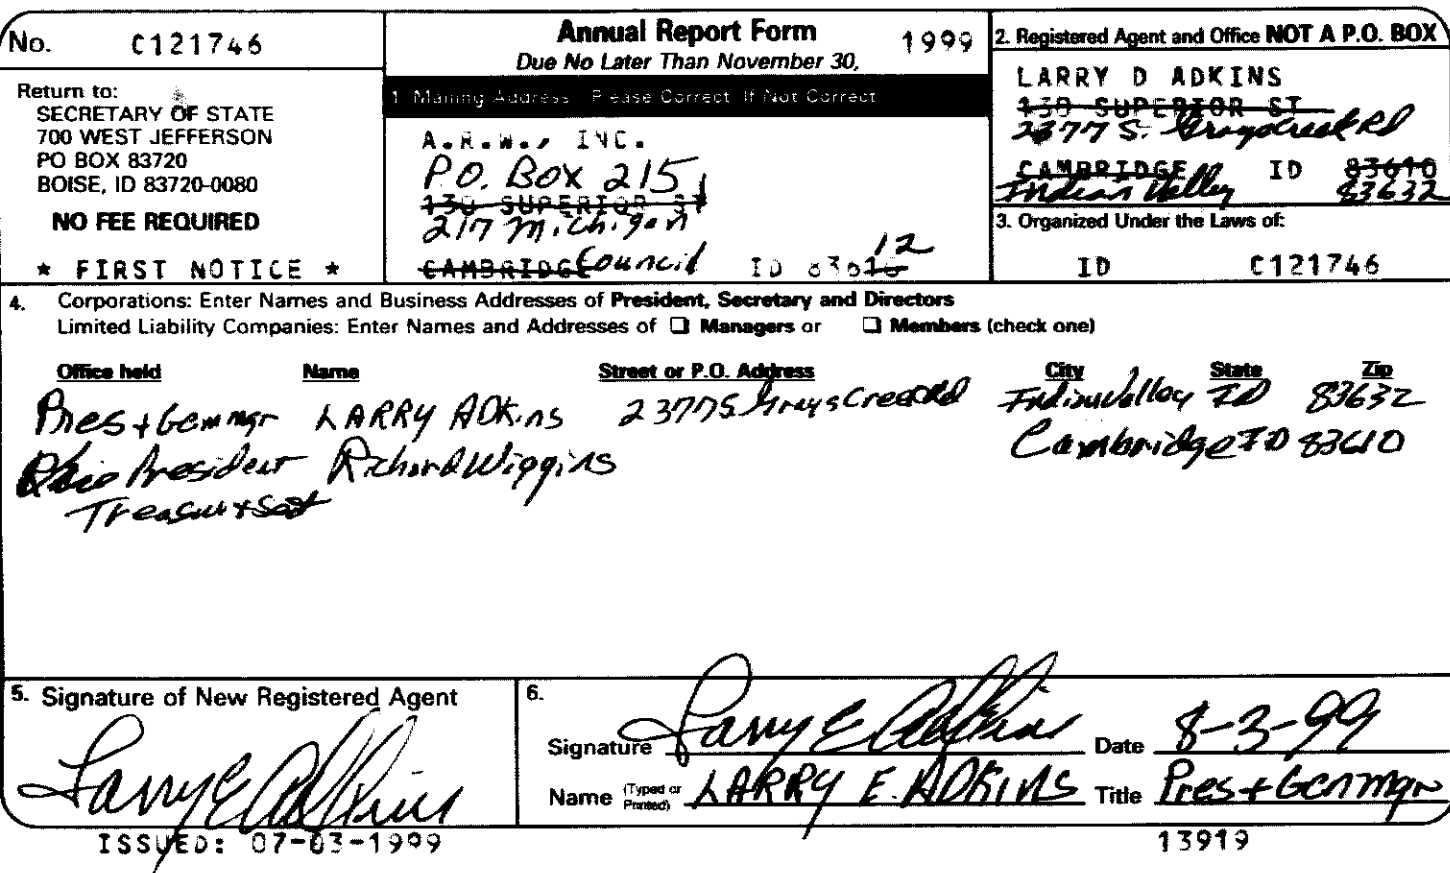 No. C121746
Return to:
SECRETARY OF STATE
700 WEST JEFFERSON
PO BOX 83720
BOISE, ID 83720-0080
NO FEE REQUIRED
* FIRST NOTICE *
Annual Report Form 1999
Due No Later Than November 30,
1. Mailing Address Please Correct If Not Correct
A.R.W., INC.
P.O. Box 215
130 SUPERIOR ST
217 Michigan
CAMBRIDGE Council ID 83610 12
2. Registered Agent and Office NOT A P.O. BOX
LARRY D ADKINS
130 SUPERIOR ST
2377 S. Grays Creek Rd
CAMBRIDGE ID 83610
Indian Valley 83632
3. Organized Under the Laws of:
ID C121746
4. Corporations: Enter Names and Business Addresses of President, Secretary and Directors
Limited Liability Companies: Enter Names and Addresses of ❑ Managers or ❑ Members (check one)
Office held Name Street or P.O. Address City State Zip
Pres + Gen mgr LARRY ADKins 2377 S Grays Creek Rd Indian Valley ID 83632
Vice President Richard Wiggins Cambridge ID 83610
Treasur + Sect
5. Signature of New Registered Agent
Larry E Adkins
6.
Signature Larry E Adkins Date 8-3-99
Name (Typed or Printed) LARRY E. ADKINS Title Pres + Gen mgr
ISSUED: 07-03-1999 13919